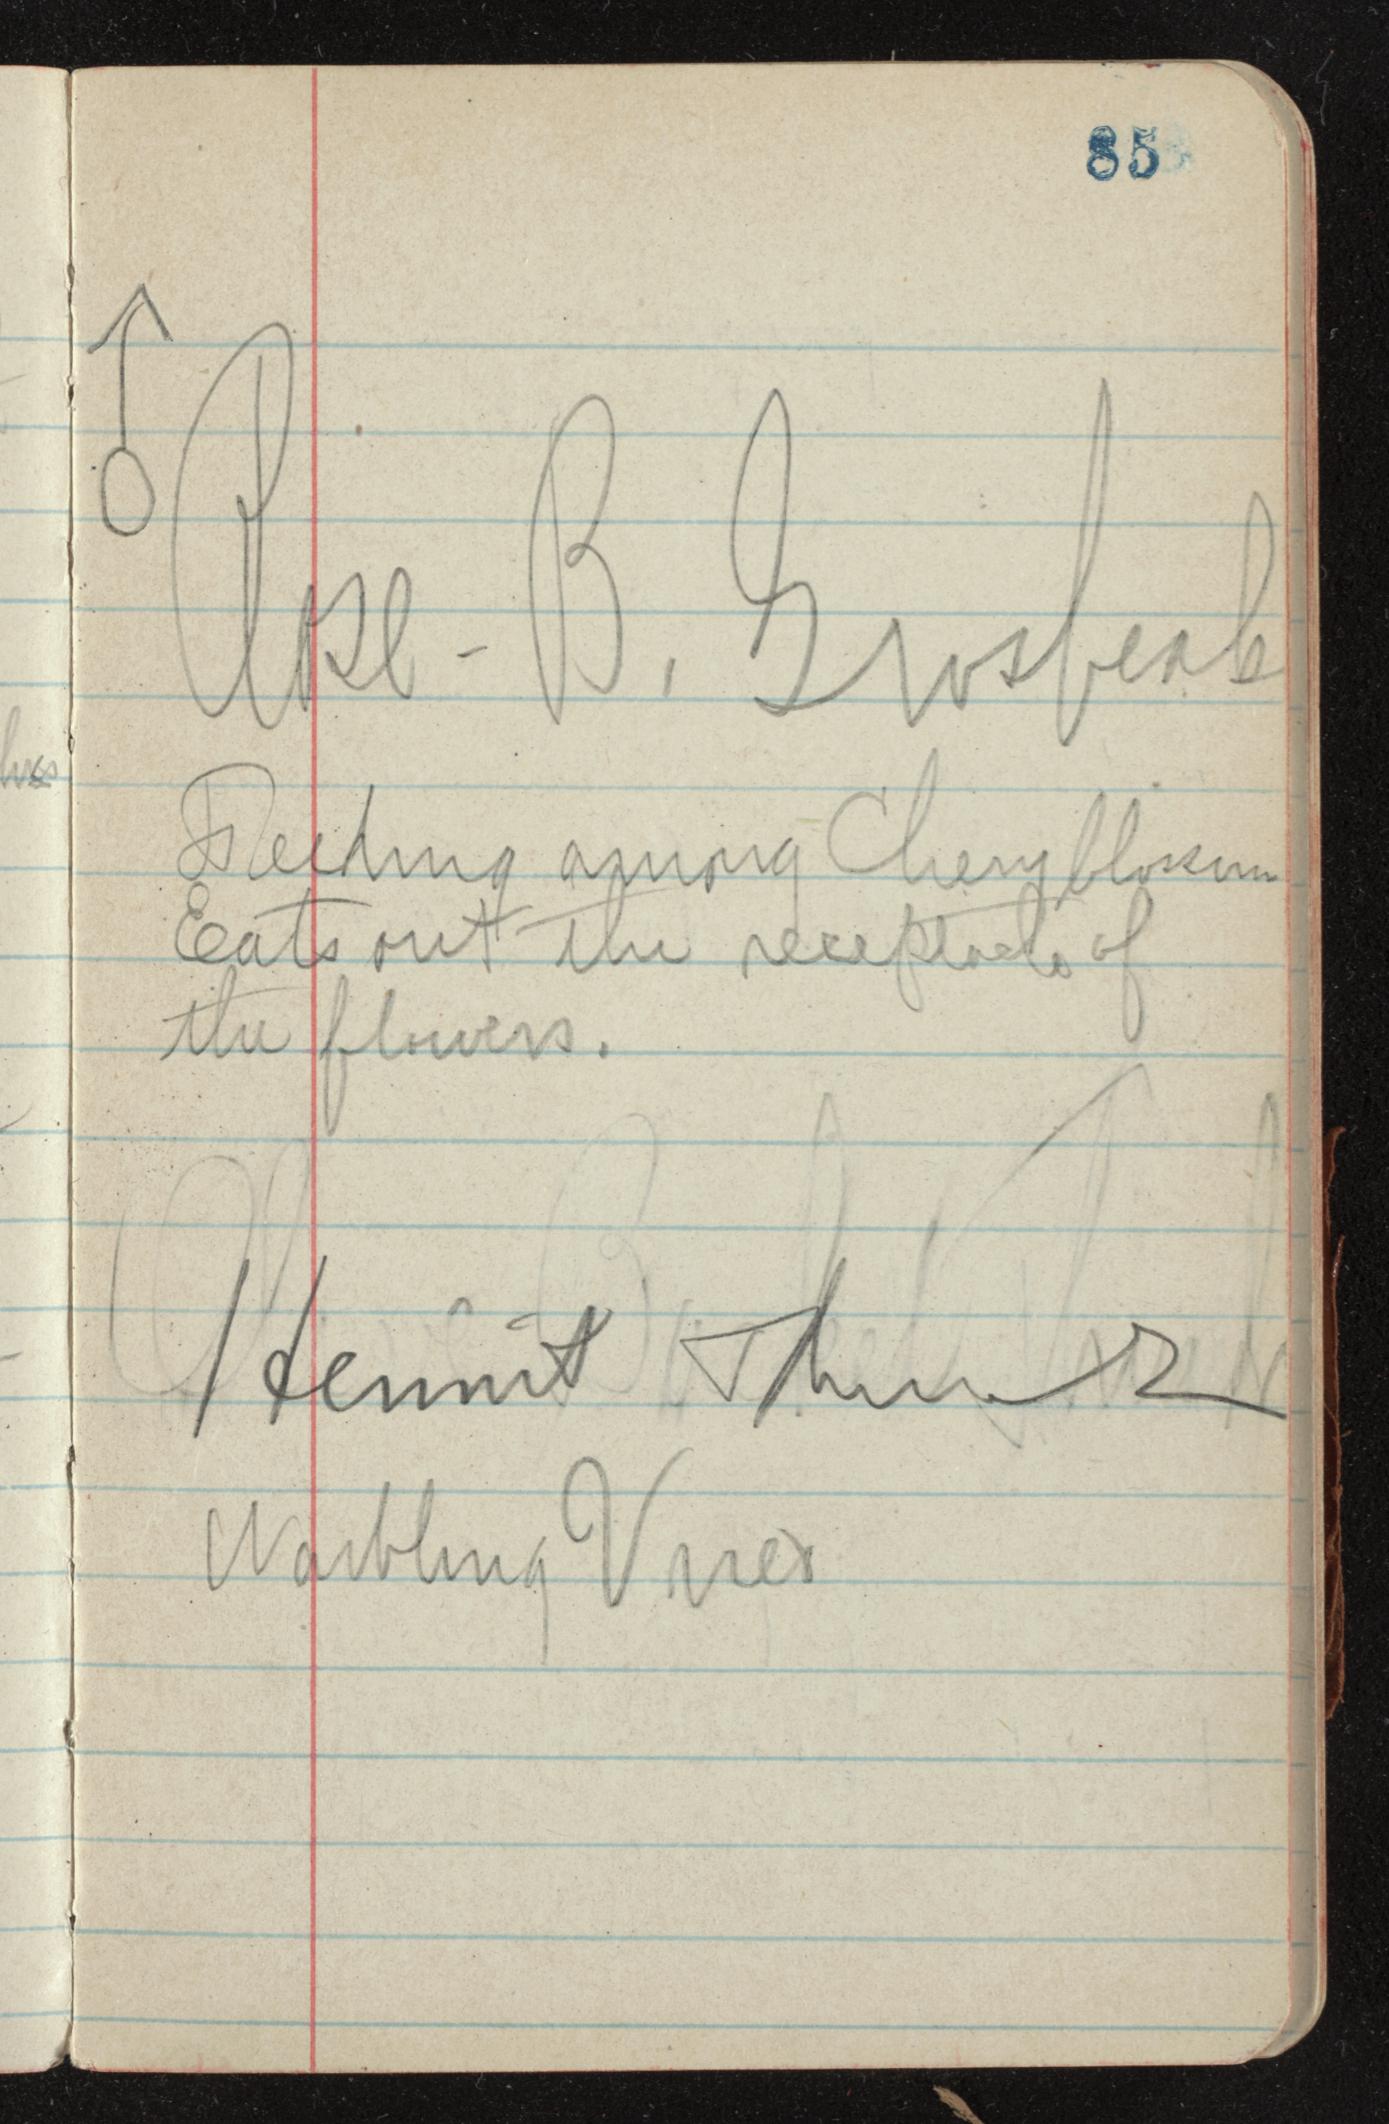 85
♂ Rose-B. Grosbeak
Feeding among Cherry blossom
Eats out the receptacle of
the flowers.
Hermit Thrush
Warbling Vireo